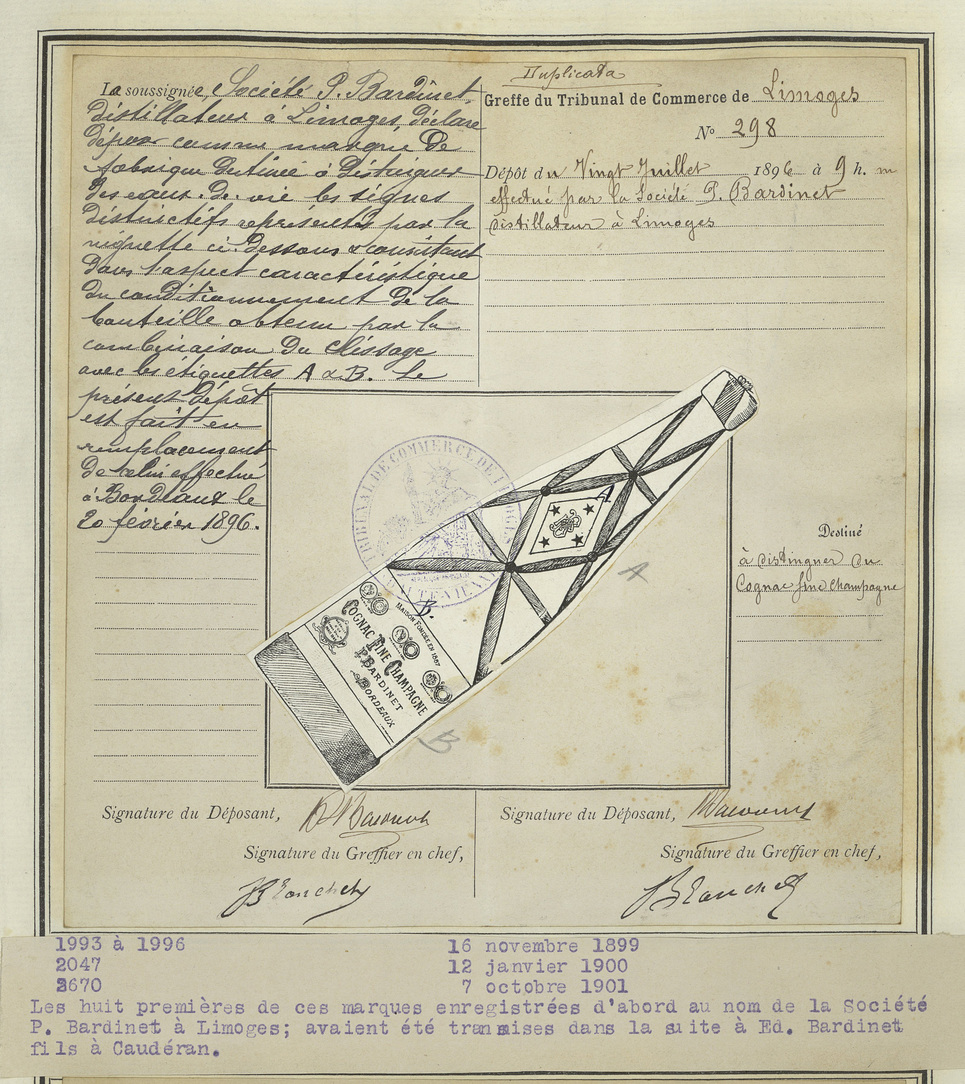 La soussignée, Société P. Bardinet,
distillateur à Limoges, déclare
déposer comme marque de
fabrique destinée à distinguer
des eaux-de-vie les signes
distinctifs représentés par la
vignette ci-dessous & consistant
dans l'aspect caractéristique
du conditionnement de la
bouteille obtenu par la
combinaison du clissage
avec les étiquettes A & B. Le
présent dépôt
est fait en
remplacement
de celui effectué
à Bordeaux le
20 février 1896.
Duplicata
Greffe du Tribunal de Commerce de Limoges
N° 298
Dépôt du Vingt Juillet 1896 à 9 h. m
effectué par la Société P. Bardinet
distillateur à Limoges
TRIBUNAL DE COMMERCE DE LIMOGES
HAUTE-VIENNE
Destiné
à distinguer du
Cognac fine Champagne
A
B
MAISON FONDÉE EN 1857
COGNAC FINE CHAMPAGNE
P. BARDINET
BORDEAUX
A
B
Signature du Déposant,
Signature du Greffier en chef,
Signature du Déposant,
Signature du Greffier en chef,
1993 à 1996 16 novembre 1899
2047 12 janvier 1900
2670 7 octobre 1901
Les huit premières de ces marques enregistrées d'abord au nom de la Société
P. Bardinet à Limoges; avaient été transmises dans la suite à Ed. Bardinet
fils à Caudéran.